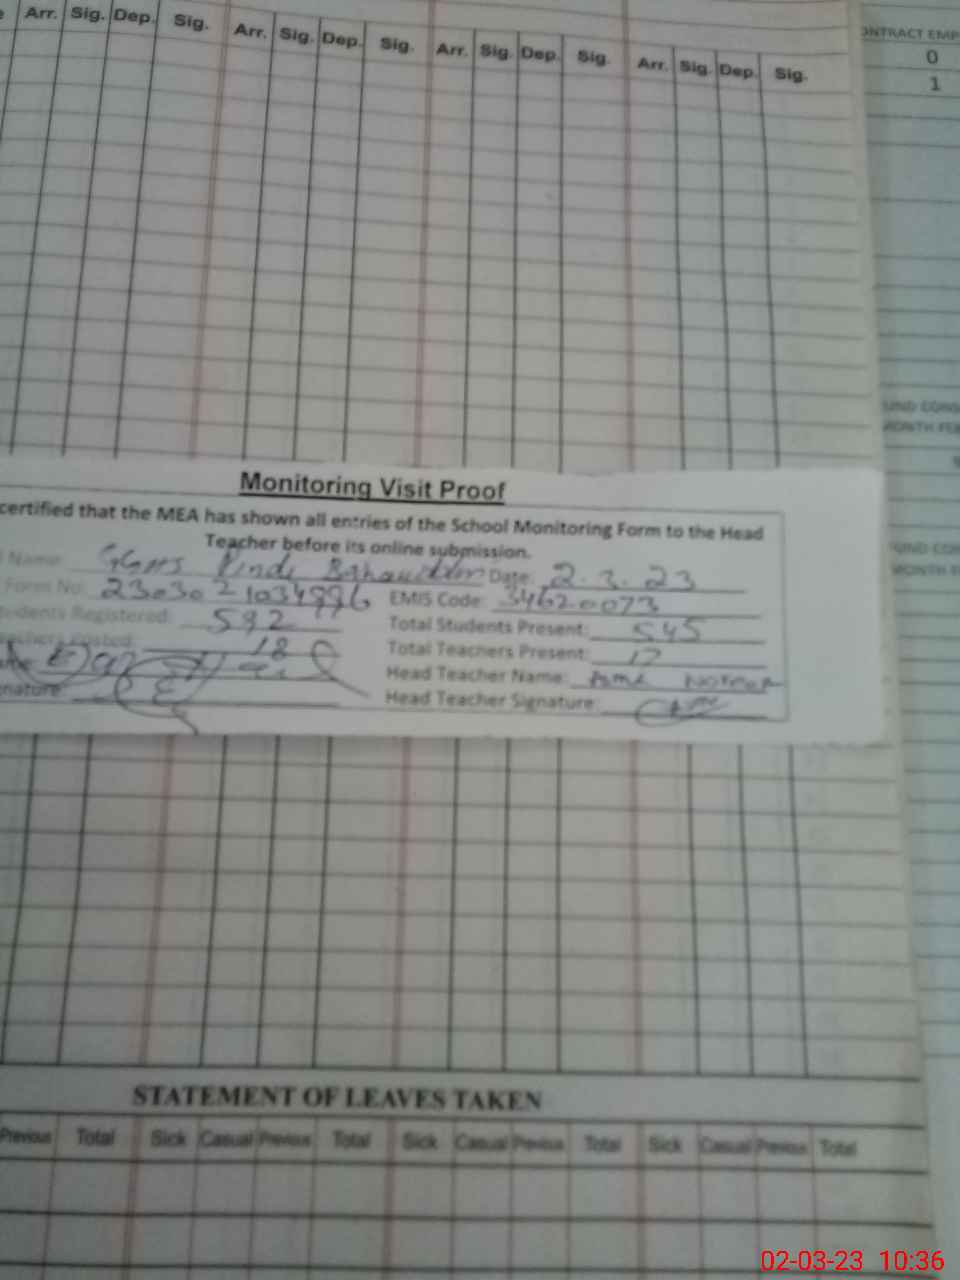 Arr. Sig. Dep. Sig. Arr. Sig. Dep. Sig. Arr. Sig. Dep. Sig. Arr. Sig. Dep. Sig.
ONTRACT EMP
0
1
UND CONS
MONTH FEB
Monitoring Visit Proof
certified that the MEA has shown all entries of the School Monitoring Form to the Head
Teacher before its online submission.
Name: GGHS Pindi Bahauddin Date: 2.3.23
Form No: EMIS Code: 34620073
tudents Registered: 592 Total Students Present: 545
eachers Posted: 18 Total Teachers Present: 17
Head Teacher Name: Asma
nature: Head Teacher Signature:
UND CON
MONTH FE
STATEMENT OF LEAVES TAKEN
Previous Total Sick Casual Previous Total Sick Casual Previous Total Sick Casual Previous Total
02-03-23 10:36